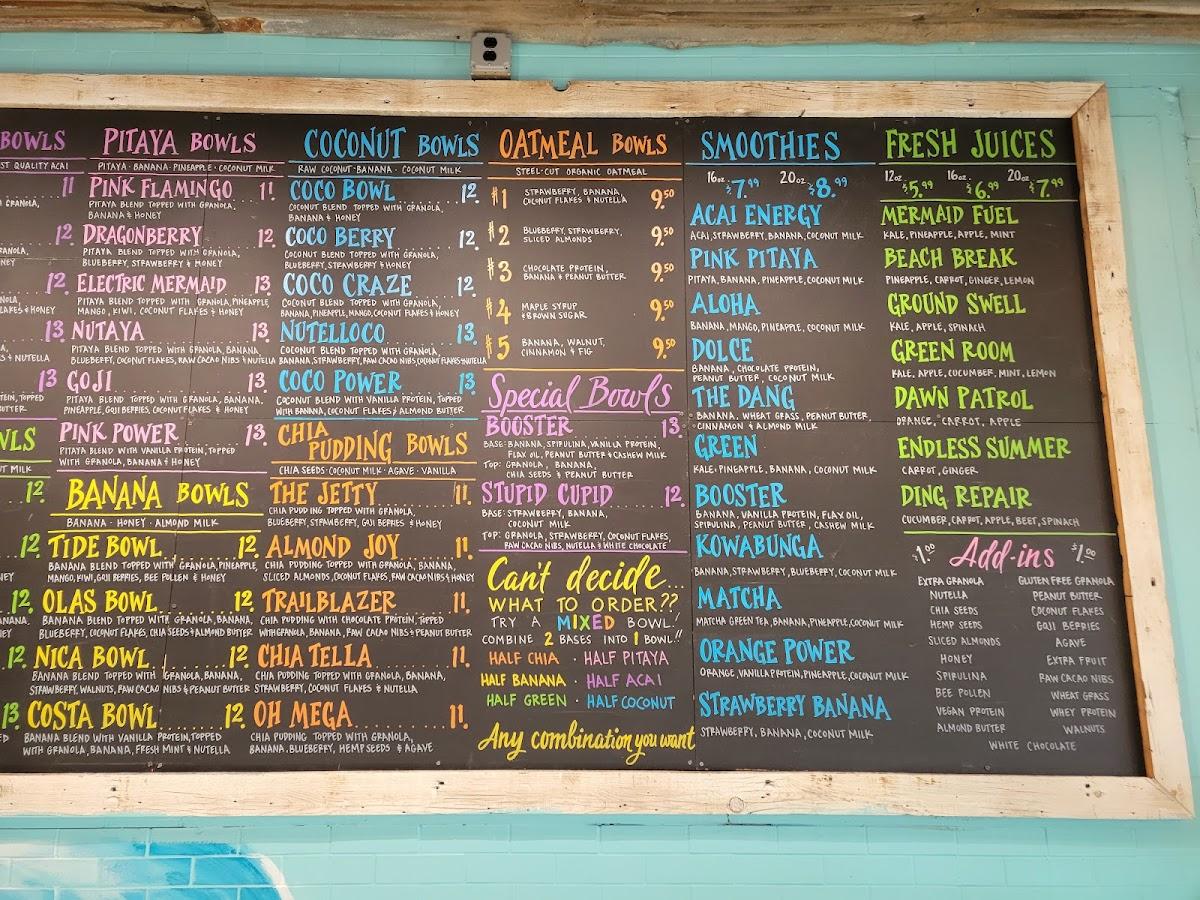 BOWLS
ST QUALITY ACAI
11
GRANOLA,
12.
NOLA,
NEY
12.
NOLA,
LAKES & HONEY
13.
S & NUTELLA
13
TEIN, TOPPED
BUTTER
WLS
T MILK
12.
12.
NEY
12.
12.
13
PITAYA BOWLS
PITAYA · BANANA · PINEAPPLE · COCONUT MILK
PINK FLAMINGO 11.
PITAYA BLEND TOPPED WITH GRANOLA,
BANANA & HONEY
DRAGONBERRY 12.
PITAYA BLEND TOPPED WITH GRANOLA,
BLUEBERRY, STRAWBERRY & HONEY
ELECTRIC MERMAID 13
PITAYA BLEND TOPPED WITH GRANOLA, PINEAPPLE,
MANGO, KIWI, COCONUT FLAKES & HONEY
NUTAYA 13.
PITAYA BLEND TOPPED WITH GRANOLA, BANANA,
BLUEBERRY, COCONUT FLAKES, RAW CACAO NIBS & NUTELLA
GOJI 13.
PITAYA BLEND TOPPED WITH GRANOLA, BANANA,
PINEAPPLE, GOJI BERRIES, COCONUT FLAKES & HONEY
PINK POWER 13.
PITAYA BLEND WITH VANILLA PROTEIN, TOPPED
WITH GRANOLA, BANANA & HONEY
BANANA BOWLS
BANANA · HONEY · ALMOND MILK
TIDE BOWL 12.
BANANA BLEND TOPPED WITH GRANOLA, PINEAPPLE,
MANGO, KIWI, GOJI BERRIES, BEE POLLEN & HONEY
OLAS BOWL 12.
BANANA BLEND TOPPED WITH GRANOLA, BANANA,
BLUEBERRY, COCONUT FLAKES, CHIA SEEDS & ALMOND BUTTER
NICA BOWL 12.
BANANA BLEND TOPPED WITH GRANOLA, BANANA,
STRAWBERRY, WALNUTS, RAW CACAO NIBS & PEANUT BUTTER
COSTA BOWL 12.
BANANA BLEND WITH VANILLA PROTEIN, TOPPED
WITH GRANOLA, BANANA, FRESH MINT & NUTELLA
COCONUT BOWLS
RAW COCONUT · BANANA · COCONUT MILK
COCO BOWL 12.
COCONUT BLEND TOPPED WITH GRANOLA,
BANANA & HONEY
COCO BERRY 12.
COCONUT BLEND TOPPED WITH GRANOLA,
BLUEBERRY, STRAWBERRY & HONEY
COCO CRAZE 12.
COCONUT BLEND TOPPED WITH GRANOLA,
BANANA, PINEAPPLE, MANGO, COCONUT FLAKES & HONEY
NUTELLOCO 13.
COCONUT BLEND TOPPED WITH GRANOLA,
BANANA, STRAWBERRY, RAW CACAO NIBS, COCONUT FLAKES & NUTELLA
COCO POWER 13.
COCONUT BLEND WITH VANILLA PROTEIN, TOPPED
WITH BANANA, COCONUT FLAKES & ALMOND BUTTER
CHIA
PUDDING BOWLS
CHIA SEEDS · COCONUT MILK · AGAVE · VANILLA
THE JETTY 11.
CHIA PUDDING TOPPED WITH GRANOLA,
BLUEBERRY, STRAWBERRY, GOJI BERRIES & HONEY
ALMOND JOY 11.
CHIA PUDDING TOPPED WITH GRANOLA, BANANA,
SLICED ALMONDS, COCONUT FLAKES, RAW CACAO NIBS & HONEY
TRAILBLAZER 11.
CHIA PUDDING WITH CHOCOLATE PROTEIN, TOPPED
WITH GRANOLA, BANANA, RAW CACAO NIBS & PEANUT BUTTER
CHIA TELLA 11.
CHIA PUDDING TOPPED WITH GRANOLA, BANANA,
STRAWBERRY, COCONUT FLAKES & NUTELLA
OH MEGA 11.
CHIA PUDDING TOPPED WITH GRANOLA,
BANANA, BLUEBERRY, HEMP SEEDS & AGAVE
OATMEAL BOWLS
STEEL-CUT ORGANIC OATMEAL
#1 STRAWBERRY, BANANA,
COCONUT FLAKES & NUTELLA 9.50
#2 BLUEBERRY, STRAWBERRY,
SLICED ALMONDS 9.50
#3 CHOCOLATE PROTEIN,
BANANA & PEANUT BUTTER 9.50
#4 MAPLE SYRUP
& BROWN SUGAR 9.50
#5 BANANA, WALNUT,
CINNAMON & FIG 9.50
Special Bowls
BOOSTER 13.
BASE: BANANA, SPIRULINA, VANILLA PROTEIN,
FLAX OIL, PEANUT BUTTER & CASHEW MILK
TOP: GRANOLA, BANANA,
CHIA SEEDS & PEANUT BUTTER
STUPID CUPID 12.
BASE: STRAWBERRY, BANANA,
COCONUT MILK
TOP: GRANOLA, STRAWBERRY, COCONUT FLAKES,
RAW CACAO NIBS, NUTELLA & WHITE CHOCOLATE
Can't decide...
WHAT TO ORDER??
TRY A MIXED BOWL!
COMBINE 2 BASES INTO 1 BOWL!!
HALF CHIA · HALF PITAYA
HALF BANANA · HALF ACAI
HALF GREEN · HALF COCONUT
Any combination you want
SMOOTHIES
16oz. $7.99 20oz. $8.99
ACAI ENERGY
ACAI, STRAWBERRY, BANANA, COCONUT MILK
PINK PITAYA
PITAYA, BANANA, PINEAPPLE, COCONUT MILK
ALOHA
BANANA, MANGO, PINEAPPLE, COCONUT MILK
DOLCE
BANANA, CHOCOLATE PROTEIN,
PEANUT BUTTER, COCONUT MILK
THE DANG
BANANA, WHEAT GRASS, PEANUT BUTTER,
CINNAMON & ALMOND MILK
GREEN
KALE, PINEAPPLE, BANANA, COCONUT MILK
BOOSTER
BANANA, VANILLA PROTEIN, FLAX OIL,
SPIRULINA, PEANUT BUTTER, CASHEW MILK
KOWABUNGA
BANANA, STRAWBERRY, BLUEBERRY, COCONUT MILK
MATCHA
MATCHA GREEN TEA, BANANA, PINEAPPLE, COCONUT MILK
ORANGE POWER
ORANGE, VANILLA PROTEIN, PINEAPPLE, COCONUT MILK
STRAWBERRY BANANA
STRAWBERRY, BANANA, COCONUT MILK
FRESH JUICES
12oz. $5.99 16oz. $6.99 20oz. $7.99
MERMAID FUEL
KALE, PINEAPPLE, APPLE, MINT
BEACH BREAK
PINEAPPLE, CARROT, GINGER, LEMON
GROUND SWELL
KALE, APPLE, SPINACH
GREEN ROOM
KALE, APPLE, CUCUMBER, MINT, LEMON
DAWN PATROL
ORANGE, CARROT, APPLE
ENDLESS SUMMER
CARROT, GINGER
DING REPAIR
CUCUMBER, CARROT, APPLE, BEET, SPINACH
$1.00 Add-ins $1.00
EXTRA GRANOLA GLUTEN FREE GRANOLA
NUTELLA PEANUT BUTTER
CHIA SEEDS COCONUT FLAKES
HEMP SEEDS GOJI BERRIES
SLICED ALMONDS AGAVE
HONEY EXTRA FRUIT
SPIRULINA RAW CACAO NIBS
BEE POLLEN WHEAT GRASS
VEGAN PROTEIN WHEY PROTEIN
ALMOND BUTTER WALNUTS
WHITE CHOCOLATE